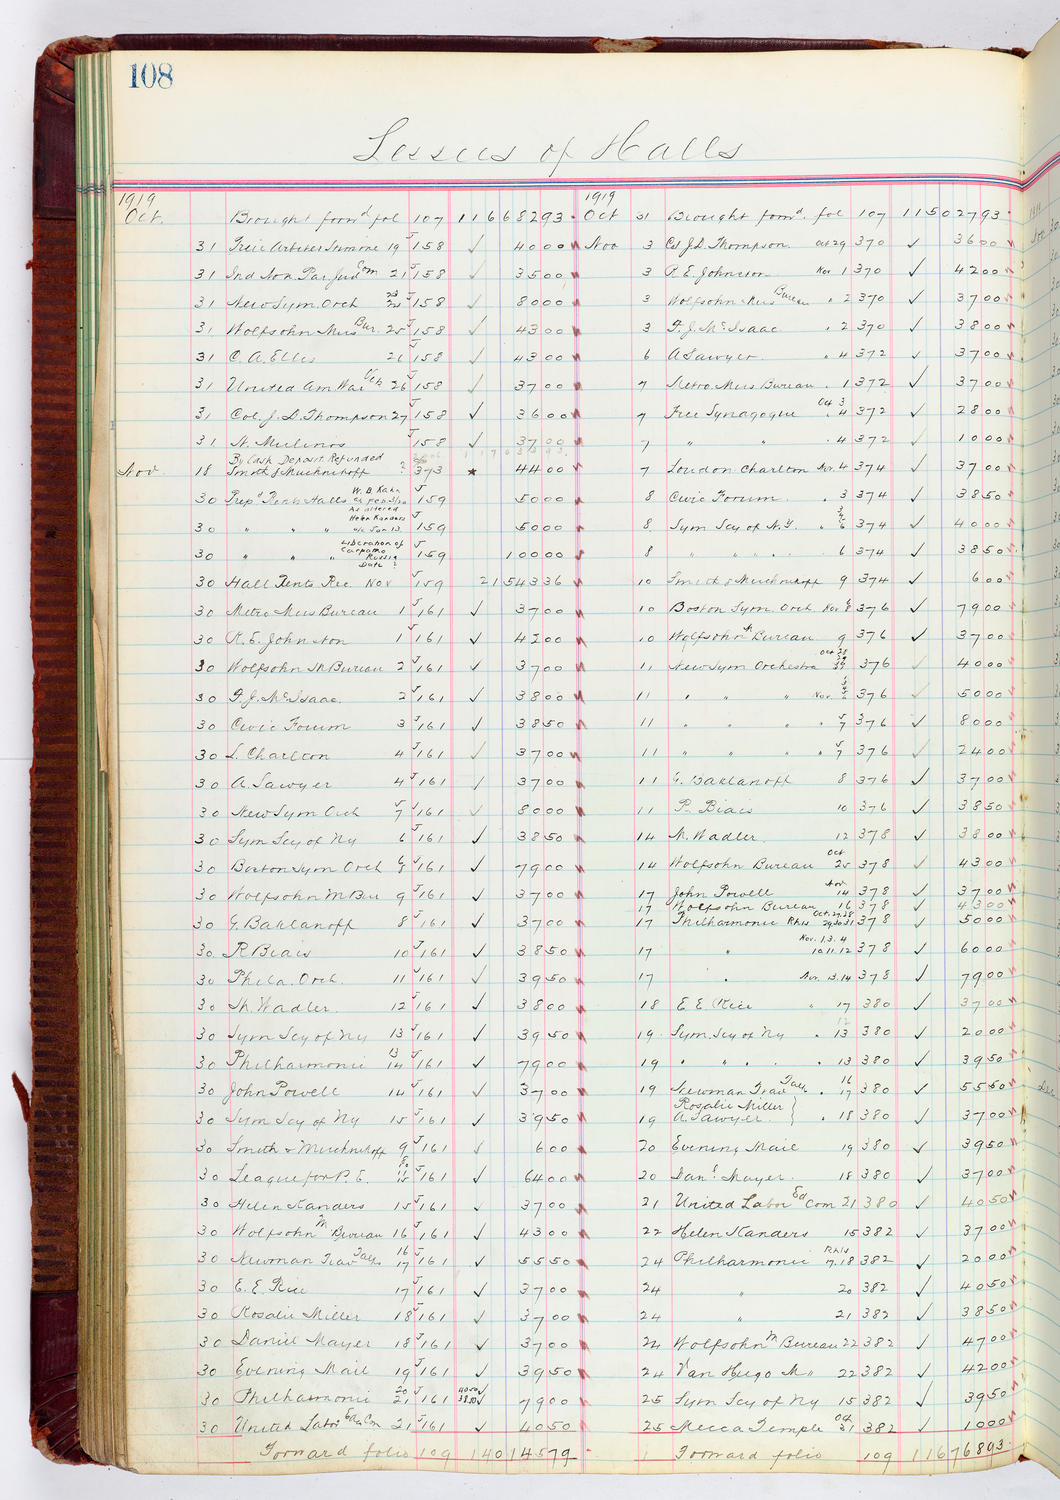 108
Lessees of Halls
1919
Oct. Brought forwd fol 107 11668293
31 Treie Arbeiter Stimme 19 J 158 ✓ 4000
31 Ind Non Par Jud Com 21 J 158 ✓ 3500
31 New Sym. Orch J 158 ✓ 8000
31 Wolfsohn Mus Bur. 25 J 158 ✓ 4300
31 C. A. Ellis 26 J 158 ✓ 4300
31 United Am War Vets 26 J 158 ✓ 3700
31 Col. J. D. Thompson 27 J 158 ✓ 3600
31 N. Mulinos J 158 ✓ 3700
By Cash Deposit Refunded
Nov. 18 Smith & Muchnikoff ? 373 * 4400
30 Prepd Rents Halls W. B. Kahn J 159 5000
As altered
30 " " " Helen Kanders a/c Jan 13 J 159 5000
30 " " " Liberation of Carpatho Russia Date ? J 159 10000
30 Hall Rents Rec. Nov J 159 2154336
30 Metro Mus Bureau 1 J 161 ✓ 3700
30 R. E. Johnston 1 J 161 ✓ 4200
30 Wolfsohn M Bureau 2 J 161 ✓ 3700
30 F. J. McIsaac. 2 J 161 ✓ 3800
30 Civic Forum 3 J 161 ✓ 3850
30 L. Charlton 4 J 161 ✓ 3700
30 A. Sawyer 4 J 161 ✓ 3700
30 New Sym Orch 7 J 161 ✓ 8000
30 Sym Scy of Ny 6 J 161 ✓ 3850
30 Boston Sym Orch 8 J 161 ✓ 7900
30 Wolfsohn M Bur 9 J 161 ✓ 3700
30 G. Baklanoff 8 J 161 ✓ 3700
30 R Biais 10 J 161 ✓ 3850
30 Phila. Orch. 11 J 161 ✓ 3950
30 M. Wadler. 12 J 161 ✓ 3800
30 Sym Scy of Ny 13 J 161 ✓ 3950
30 Philharmonic 13 14 J 161 ✓ 7900
30 John Powell 14 J 161 ✓ 3700
30 Sym Scy of Ny 15 J 161 ✓ 3950
30 Smith & Muchnikoff 9 J 161 ✓ 600
30 League for P. E. J 161 ✓ 6400
30 Helen Kanders 15 J 161 ✓ 3700
30 Wolfsohn M Bureau 16 J 161 ✓ 4300
30 Newman Trav Talks 16 17 J 161 ✓ 5550
30 E. E. Rice 17 J 161 ✓ 3700
30 Rosalie Miller 18 J 161 ✓ 3700
30 Daniel Mayer 18 J 161 ✓ 3700
30 Evening Mail 19 J 161 ✓ 3950
30 Philharmonic 20 21 J 161 4050✓ 3850✓ 7900
30 United Labor Edu Com 21 J 161 ✓ 4050
Forward folio 109 14014579
1919
Oct 31 Brought forwd. fol 107 11502793
Nov 3 Col J. D. Thompson. Oct 29 370 ✓ 3600
3 R. E. Johnston Nov 1 370 ✓ 4200
3 Wolfsohn Mus Bureau " 2 370 ✓ 3700
3 F. J. McIsaac " 2 370 ✓ 3800
6 A Sawyer " 4 372 ✓ 3700
7 Metro. Mus Bureau " 1 372 ✓ 3700
7 Free Synagogue Oct 3 4 372 ✓ 2800
7 " " " 4 372 ✓ 1000
7 London Charlton Nov. 4 374 ✓ 3700
8 Civic Forum " 3 374 ✓ 3850
8 Sym Scy of N.Y. " 6 374 ✓ 4000
8 " " " " 6 374 ✓ 3850
10 Smith & Muchnikoff 9 374 ✓ 600
10 Boston Sym. Orch Nov 8 376 ✓ 7900
10 Wolfsohn M Bureau 9 376 ✓ 3700
11 New Sym Orchestra Oct 28 376 ✓ 4000
11 " " " Nov. 376 ✓ 5000
11 " " " 7 376 ✓ 8000
11 " " " " 7 376 ✓ 2400
11 G. Baklanoff 8 376 ✓ 3700
11 R Biais 10 376 ✓ 3850
14 M. Wadler 12 378 ✓ 3800
14 Wolfsohn Bureau Oct 25 378 ✓ 4300
17 John Powell Nov 14 378 ✓ 3700
17 Wolfsohn Bureau 16 378 ✓ 4300
17 Philharmonic Rhls Oct. 27. 28 29 30 31 378 ✓ 5000
17 " Nov. 1, 3. 4 10 11. 12 378 ✓ 6000
17 " Nov. 13.14 378 ✓ 7900
18 E. E. Rice " 17 380 ✓ 3700
19 Sym. Scy of Ny " 13 380 ✓ 2000
19 " " " " 13 380 ✓ 3950
19 Newman Trav Talks " 16 17 380 ✓ 5550
Rosalie Miller
19 A. Sawyer. } " 18 380 ✓ 3700
20 Evening Mail 19 380 ✓ 3950
20 Danl. Mayer. 18 380 ✓ 3700
21 United Labor Ed Com 21 380 ✓ 4050
22 Helen Kanders 15 382 ✓ 3700
24 Philharmonic Rhls 7. 18 382 ✓ 2000
24 " 20 382 ✓ 4050
24 " 21 382 ✓ 3850
24 Wolfsohn M Bureau 22 382 ✓ 4700
24 Van Hugo M " 22 382 ✓ 4200
25 Sym Scy of Ny 15 382 ✓ 3950
25 Mecca Temple Oct 31 382 ✓ 1000
Forward folio 109 11676893